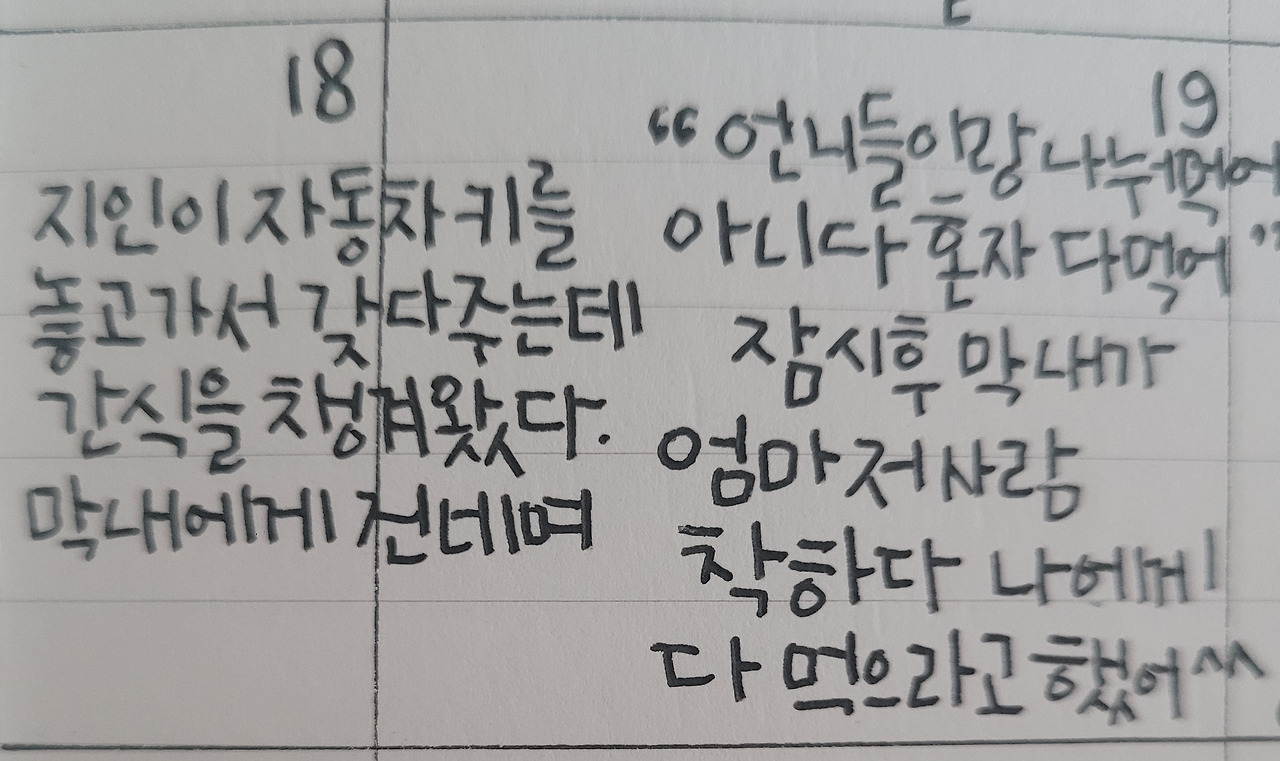 18
지인이 자동차 키를
놓고가서 갖다주는데
간식을 챙겨왔다.
막내에게 건네며
19
“언니들이랑 나눠먹어
아니다 혼자 다먹어”
잠시후 막내가
엄마 저사람
착하다 나에게
다 먹으라고 했어^^